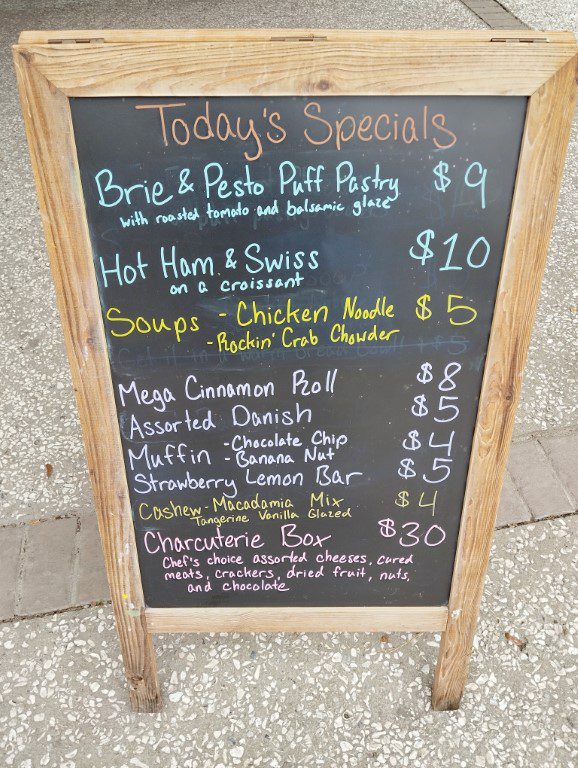 Today's Specials
Brie & Pesto Puff Pastry $9
with roasted tomato and balsamic glaze
Hot Ham & Swiss $10
on a croissant
Soups - Chicken Noodle $5
- Rockin' Crab Chowder
Mega Cinnamon Roll $8
Assorted Danish $5
Muffin - Chocolate Chip $4
- Banana Nut
Strawberry Lemon Bar $5
Cashew - Macadamia Mix $4
Tangerine Vanilla Glazed
Charcuterie Box $30
Chef's choice assorted cheeses, cured
meats, crackers, dried fruit, nuts,
and chocolate